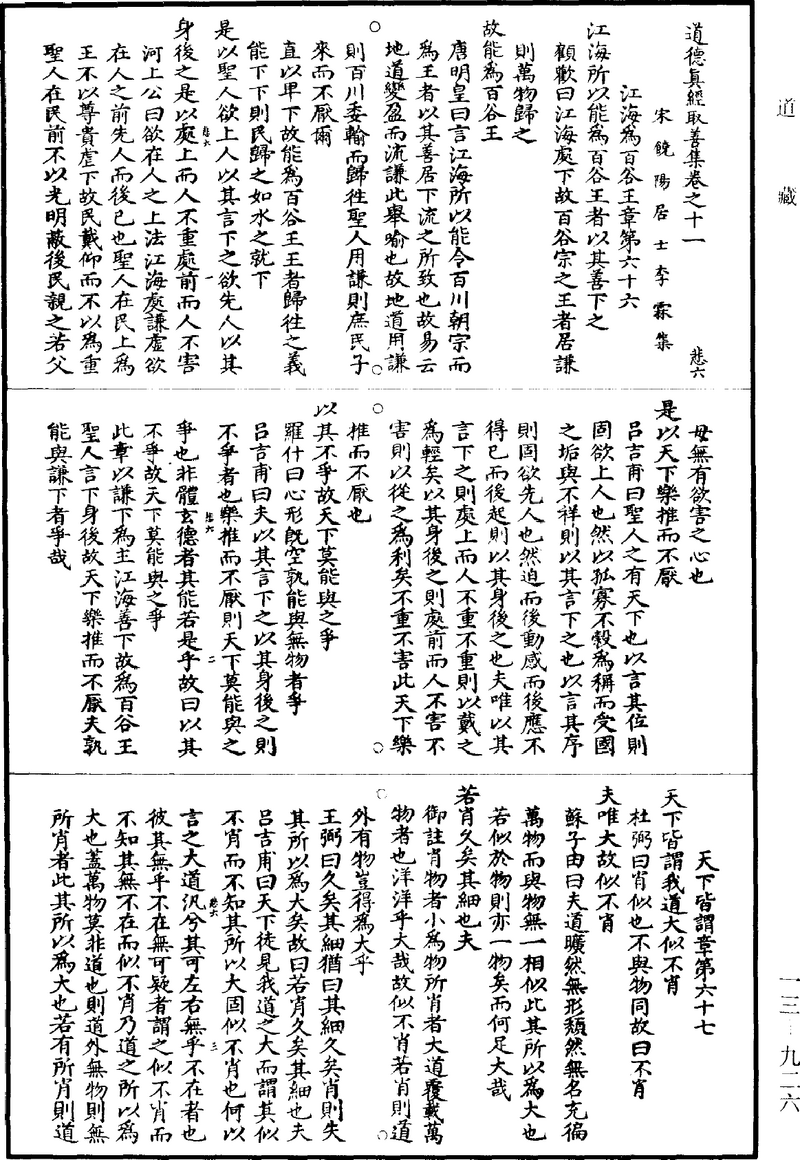 道藏
道德真經取善集卷之十一
悲六
宋饒陽居士李霖集
江海為百谷王章第六十六
江海所以能為百谷王者以其善下之
顧歡曰江海處下故百谷宗之王者居謙
則萬物歸之
故能為百谷王
唐明皇曰言江海所以能令百川朝宗而
為王者以其善居下流之所致也故易云
地道變盈而流謙此舉喻也故地道用謙
則百川委輸而歸徃聖人用謙則庶民子
來而不厭爾
直以卑下故能為百谷王王者歸徃之義
能下下則民歸之如水之就下
是以聖人欲上人以其言下之欲先人以其
悲六
一
身後之是以處上而人不重處前而人不害
河上公曰欲在人之上法江海處謙虛欲
在人之前先人而後已也聖人在民上為
王不以尊貴虐下故民戴仰而不以為重
聖人在民前不以光明蔽後民親之若父
母無有欲害之心也
是以天下樂推而不厭
呂吉甫曰聖人之有天下也以言其位則
固欲上人也然以孤寡不穀為稱而受國
之垢與不祥則以其言下之也以言其序
則固欲先人也然迫而後動感而後應不
得已而後起則以其身後之也夫唯以其
言下之則處上而人不重不重則以戴之
為輕矣以其身後之則處前而人不害不
害則以從之為利矣不重不害此天下樂
推而不厭也
以其不爭故天下莫能與之爭
羅什曰心形旣空孰能與無物者爭
呂吉甫曰夫以其言下之以其身後之則
不爭者也樂推而不厭則天下莫能與之
悲六
二
爭也非體玄德者其能若是乎故曰以其
不爭故天下莫能與之爭
此章以謙下為主江海善下故為百谷王
聖人言下身後故天下樂推而不厭夫孰
能與謙下者爭哉
天下皆謂章第六十七
天下皆謂我道大似不肖
杜弼曰肖似也不與物同故曰不肖
夫唯大故似不肖
蘇子由曰夫道曠然無形頹然無名充徧
萬物而與物無一相似此其所以為大也
若似於物則亦一物矣而何足大哉
若肖久矣其細也夫
御註肖物者小為物所肖者大道覆載萬
物者也洋洋乎大哉故似不肖若肖則道
外有物豈得為大乎
王弼曰久矣其細猶曰其細久矣肖則失
其所以為大矣故曰若肖久矣其細也夫
呂吉甫曰天下徒見我道之大而謂其似
不肖而不知其所以大固似不肖也何以
悲六
三
言之大道汎兮其可左右無乎不在者也
彼其無乎不在無可疑者謂之似不肖而
不知其無不在而似不肖乃道之所以為
大也蓋萬物莫非道也則道外無物則無
所肖者此其所以為大也若有所肖則道
一三—九二六